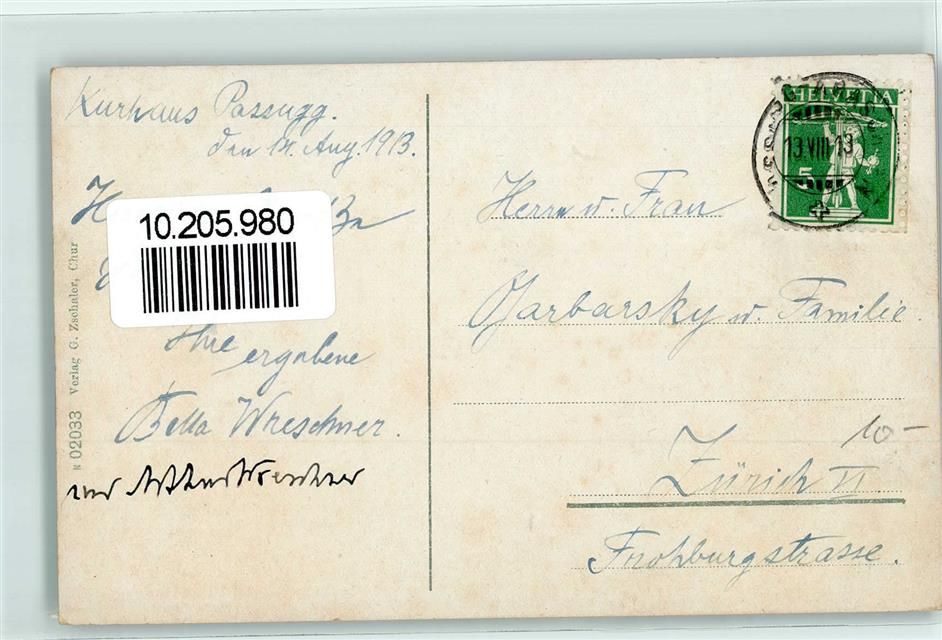 Kurhaus Passugg.
den 14. Aug. 1913.
10.205.980
Ihre ergebene
Bella Wreschner.
und Arthur Wreschner
Verlag G. Zschaler, Chur
N 02033
HELVETIA
5
13.VIII.13
Herrn u. Frau
Garbarsky u. Familie.
10-
Zürich VI.
Frohburgstrasse.